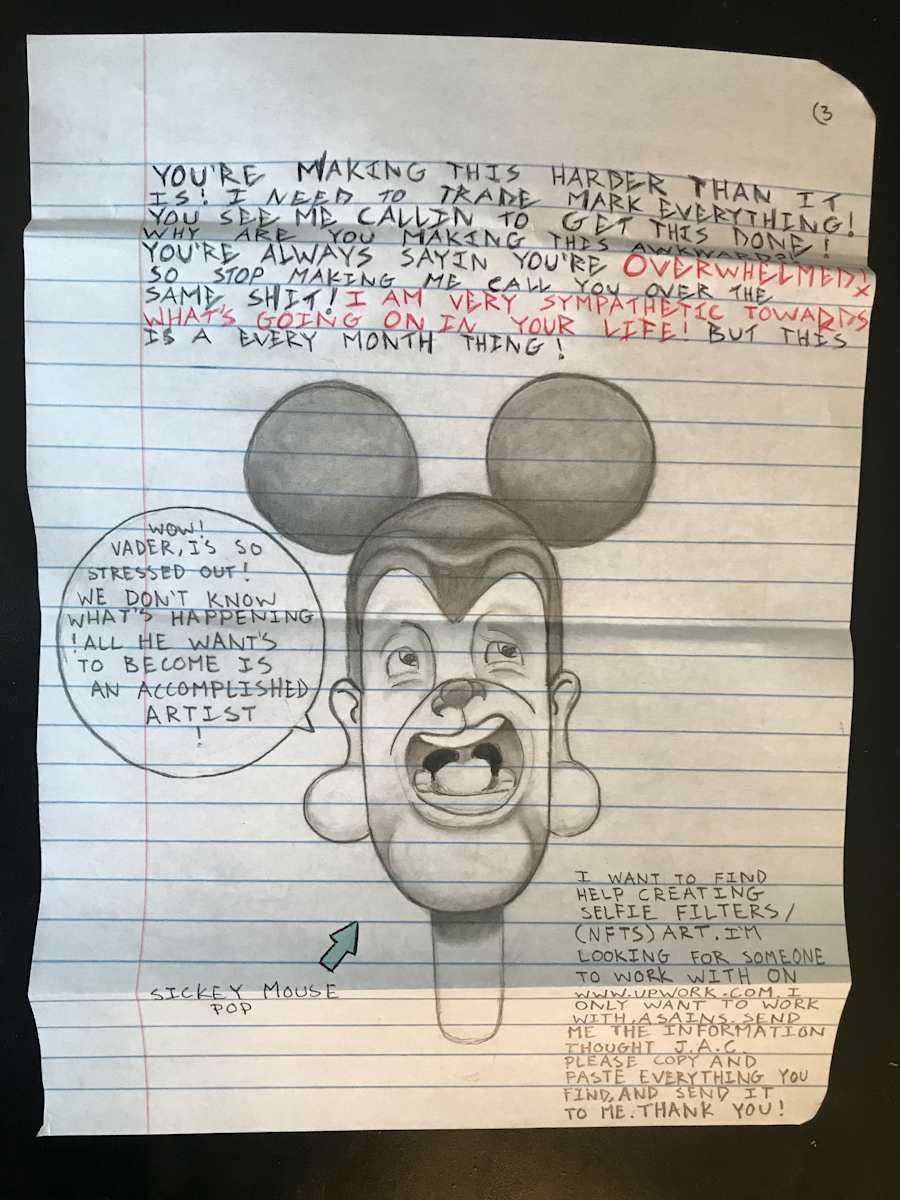 (3
YOU'RE MAKING THIS HARDER THAN IT
IS! I NEED TO TRADE MARK EVERYTHING!
YOU SEE ME CALLIN TO GET THIS DONE!
WHY ARE YOU MAKING THIS AWKWARD?!
YOU'RE ALWAYS SAYIN YOU'RE OVERWHELMED!
SO STOP MAKING ME CALL YOU OVER THE
SAME SHIT! I AM VERY SYMPATHETIC TOWARDS
WHAT'S GOING ON IN YOUR LIFE! BUT THIS
IS A EVERY MONTH THING!
WOW!
VADER, I'S SO
STRESSED OUT!
WE DON'T KNOW
WHAT'S HAPPENING
! ALL HE WANT'S
TO BECOME IS
AN ACCOMPLISHED
ARTIST
!
SICKEY MOUSE
POP
I WANT TO FIND
HELP CREATING
SELFIE FILTERS/
(NFTS) ART. I'M
LOOKING FOR SOMEONE
TO WORK WITH ON
WWW.UPWORK.COM. I
ONLY WANT TO WORK
WITH, ASAINS. SEND
ME THE INFORMATION
THOUGHT J.A.C.
PLEASE COPY AND
PASTE EVERYTHING YOU
FIND, AND SEND IT
TO ME. THANK YOU!